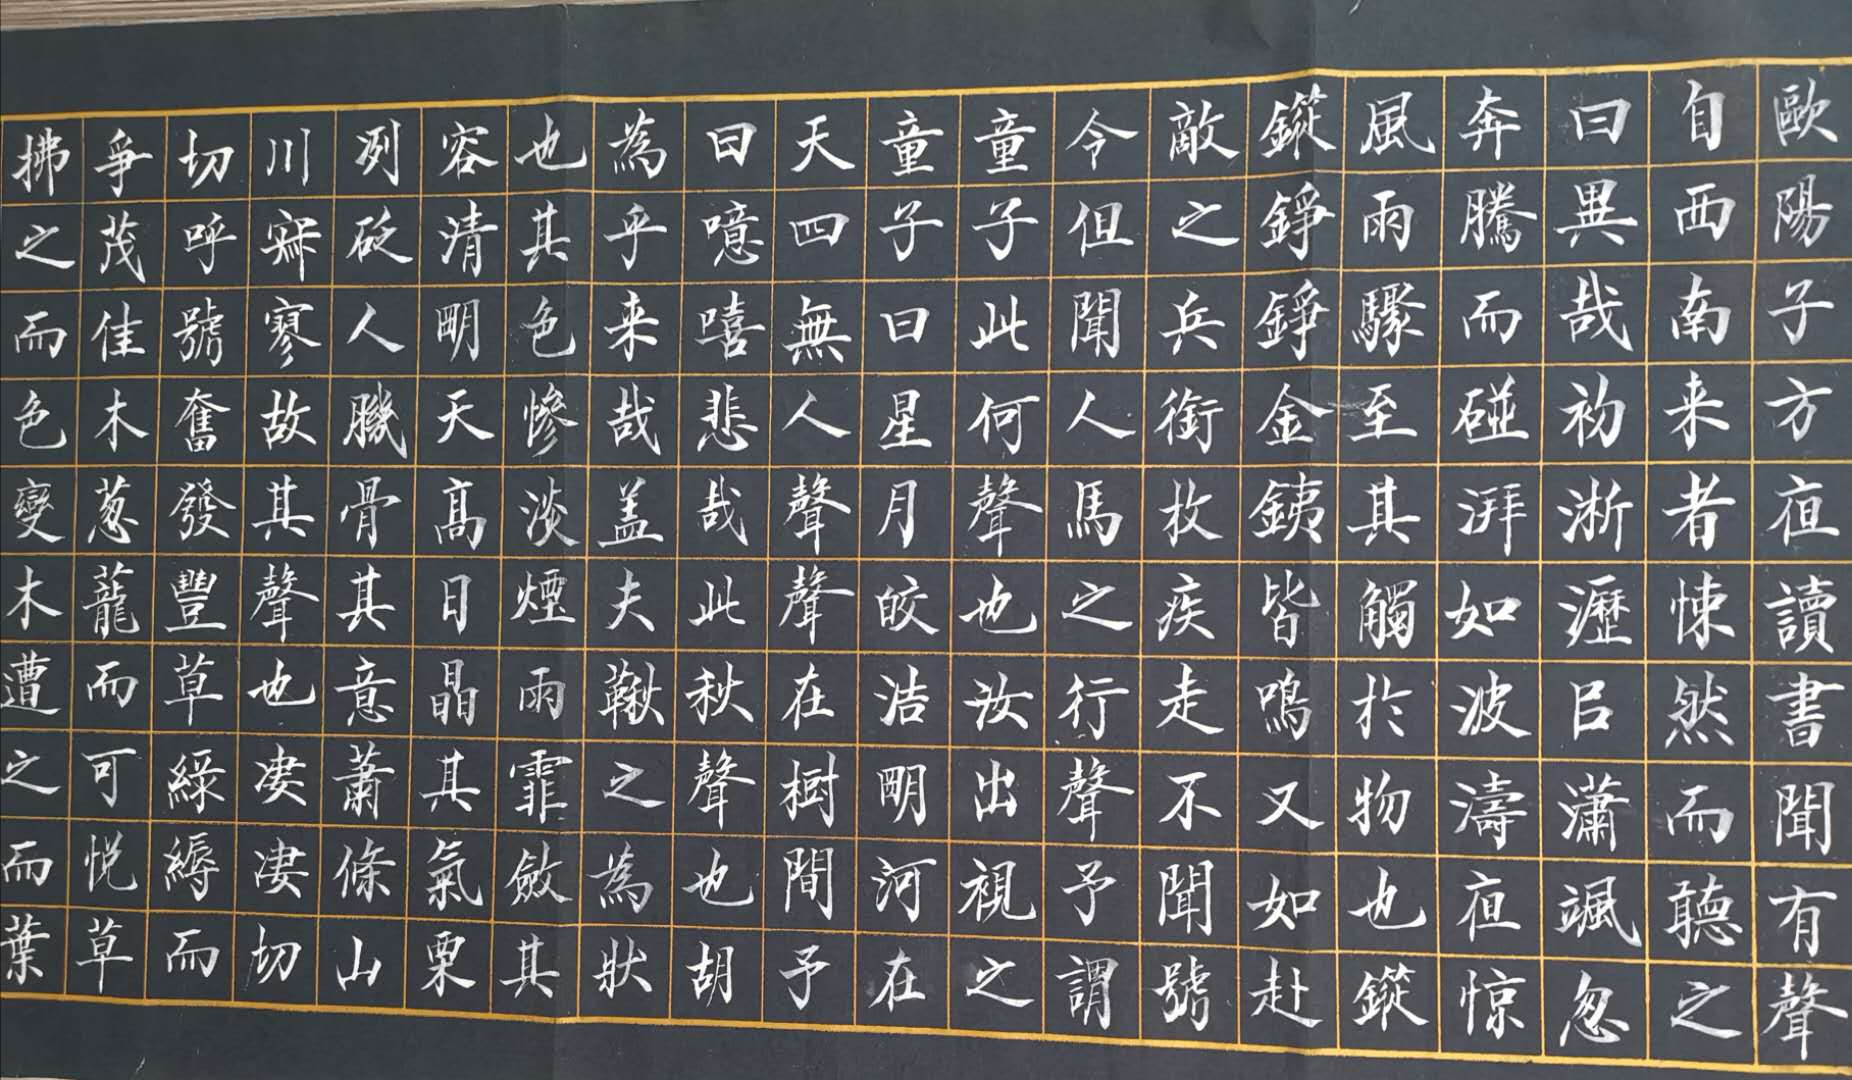 歐陽子方夜讀書聞有聲
自西南来者悚然而聽之
曰異哉初淅瀝以瀟颯忽
奔騰而碰湃如波濤夜惊
風雨驟至其觸於物也鏦
鏦錚錚金銕皆鳴又如赴
敵之兵銜枚疾走不聞號
令但聞人馬之行聲予謂
童子此何聲也汝出視之
童子曰星月皎洁明河在
天四無人聲聲在樹間予
曰噫嘻悲哉此秋聲也胡
為乎来哉盖夫鞦之為狀
也其色慘淡煙雨霏斂其
容清明天高日晶其氣栗
冽砭人膿骨其意蕭條山
川寂寥故其聲也凄凄切
切呼號奮發豐草綠縟而
爭茂佳木葱蘢而可悅草
拂之而色變木遭之而葉